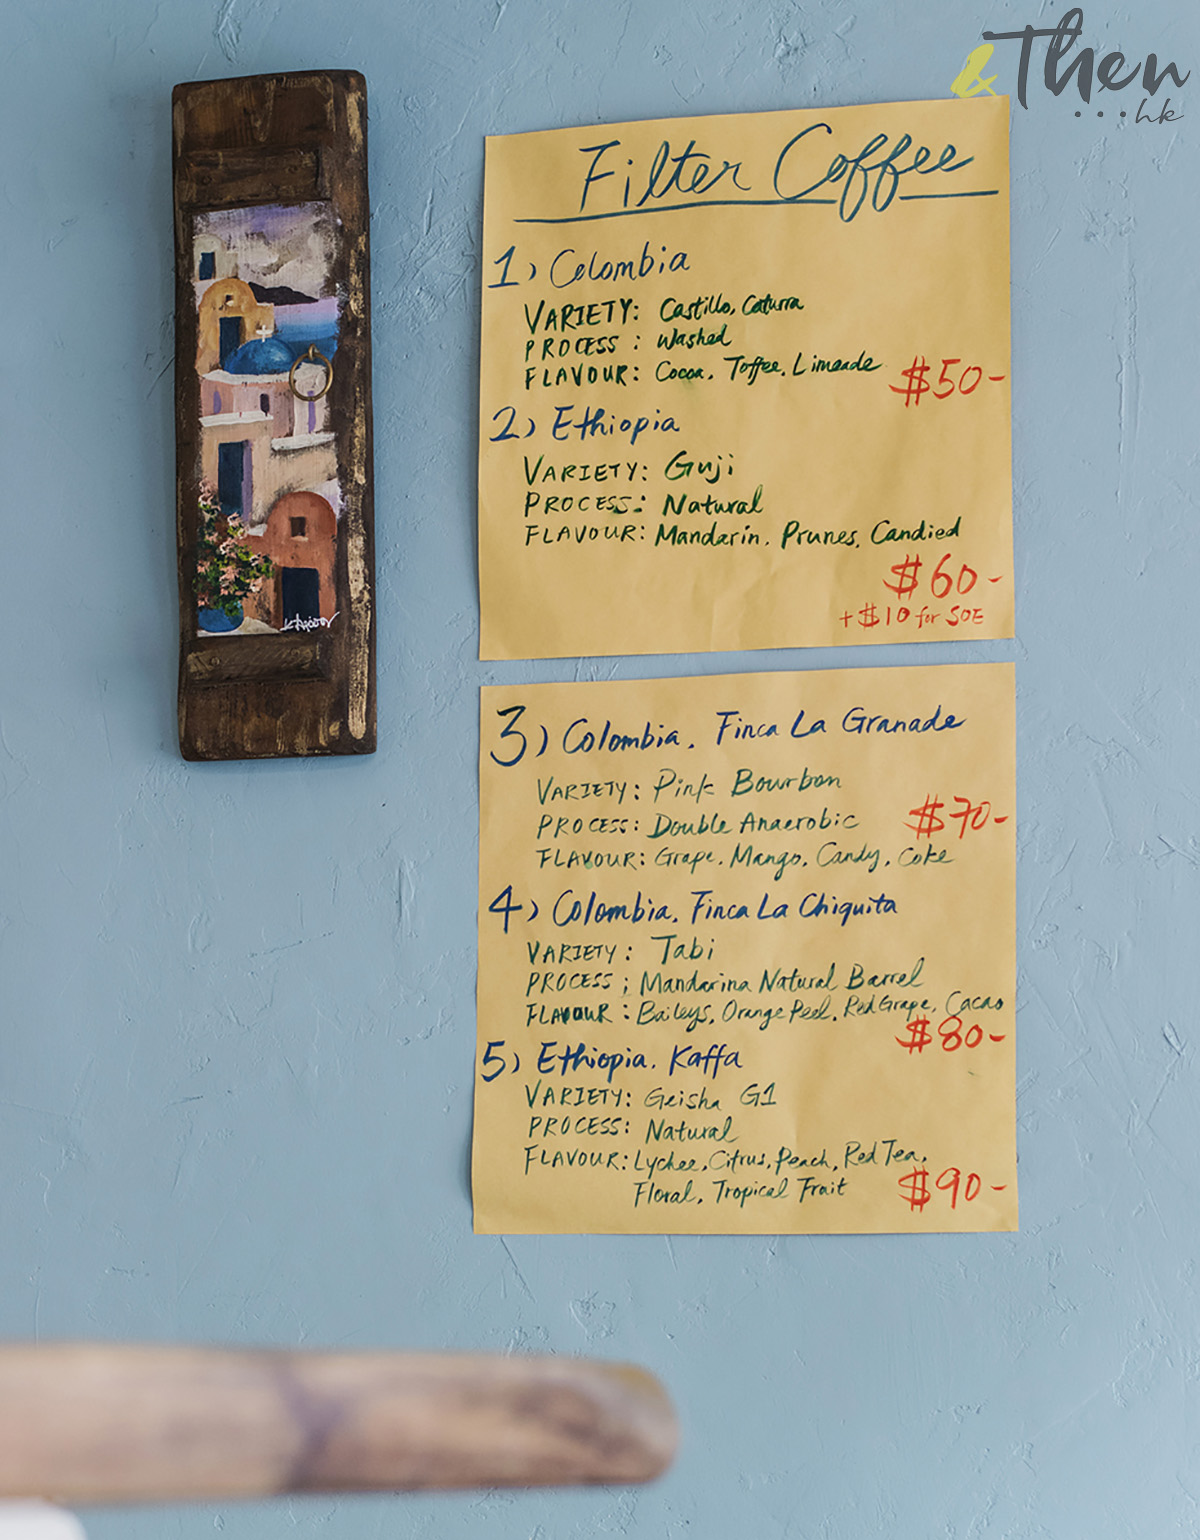 &Then
...hk
Filter Coffee
1) Colombia
VARIETY: Castillo, Caturra
PROCESS: Washed
FLAVOUR: Cocoa, Toffee, Limeade
$50-
2) Ethiopia
VARIETY: Guji
PROCESS: Natural
FLAVOUR: Mandarin, Prunes, Candied
$60-
+$10 for SOE
3) Colombia, Finca La Granade
VARIETY: Pink Bourbon
PROCESS: Double Anaerobic
$70-
FLAVOUR: Grape, Mango, Candy, Coke
4) Colombia, Finca La Chiquita
VARIETY: Tabi
PROCESS; Mandarina Natural Barrel
FLAVOUR: Baileys, Orange Peel, Red Grape, Cacao
$80-
5) Ethiopia, Kaffa
VARIETY: Geisha G1
PROCESS: Natural
FLAVOUR: Lychee, Citrus, Peach, Red Tea,
Floral, Tropical Frait
$90-